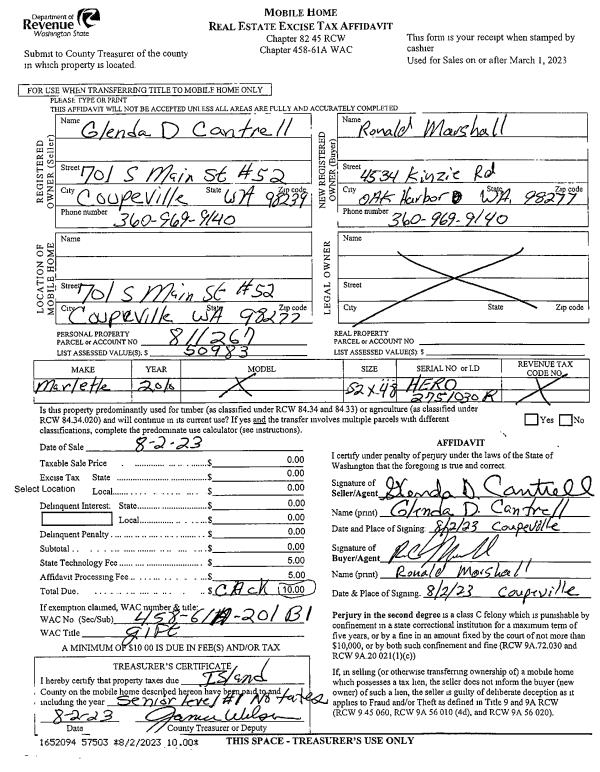 Department of
Revenue
Washington State
MOBILE HOME
REAL ESTATE EXCISE TAX AFFIDAVIT
Chapter 82 45 RCW
Chapter 458-61A WAC
This form is your receipt when stamped by
cashier
Used for Sales on or after March 1, 2023
Submit to County Treasurer of the county
in which property is located.
FOR USE WHEN TRANSFERRING TITLE TO MOBILE HOME ONLY
PLEASE TYPE OR PRINT
THIS AFFIDAVIT WILL NOT BE ACCEPTED UNLESS ALL AREAS ARE FULLY AND ACCURATELY COMPLETED
REGISTERED OWNER (Seller)
Name Glenda D Cantrell
Street 701 S Main St #52
City Coupeville State WA Zip code 98239
Phone number 360-969-9140
NEW REGISTERED OWNER (Buyer)
Name Ronald Marshall
Street 4534 Kinzie Rd
City OAK Harbor State WA Zip code 98277
Phone number 360-969-9140
LOCATION OF MOBILE HOME
Name
Street 701 S Main St #52
City Coupeville WA State 98277 Zip code
LEGAL OWNER
Name
Street
City State Zip code
PERSONAL PROPERTY
PARCEL OR ACCOUNT NO 811267
LIST ASSESSED VALUE(S) $ 50983
REAL PROPERTY
PARCEL OR ACCOUNT NO
LIST ASSESSED VALUE(S) $
MAKE YEAR MODEL SIZE SERIAL NO or I.D REVENUE TAX CODE NO.
Marlette 2010 X 52 x 48 HERO 275103OR X
Is this property predominantly used for timber (as classified under RCW 84.34 and 84.33) or agriculture (as classified under
RCW 84.34.020) and will continue in its current use? If yes and the transfer involves multiple parcels with different
classifications, complete the predominate use calculator (see instructions).
Yes No
Date of Sale 8-2-23
Taxable Sale Price $ 0.00
Excise Tax State $ 0.00
Select Location Local $ 0.00
Delinquent Interest: State $ 0.00
Local $ 0.00
Delinquent Penalty $ 0.00
Subtotal $ 0.00
State Technology Fee $ 5.00
Affidavit Processing Fee $ 5.00
Total Due $ 10.00
If exemption claimed, WAC number & title:
WAC No (Sec/Sub) 458-61A-201 B1
WAC Title gift
A MINIMUM OF $10 00 IS DUE IN FEE(S) AND/OR TAX
AFFIDAVIT
I certify under penalty of perjury under the laws of the State of
Washington that the foregoing is true and correct.
Signature of
Seller/Agent Glenda D. Cantrell
Name (print) Glenda D. Cantrell
Date and Place of Signing 8/2/23 Coupeville
Signature of
Buyer/Agent
Name (print) Ronald Marshall
Date & Place of Signing 8/2/23 Coupeville
Perjury in the second degree is a class C felony which is punishable by
confinement in a state correctional institution for a maximum term of
five years, or by a fine in an amount fixed by the court of not more than
$10,000, or by both such confinement and fine (RCW 9A.72.030 and
RCW 9A.20 021(1)(c))
If, in selling (or otherwise transferring ownership of) a mobile home
which possesses a tax lien, the seller does not inform the buyer (new
owner) of such a lien, the seller is guilty of deliberate deception as it
applies to Fraud and/or Theft as defined in Title 9 and 9A RCW
(RCW 9 45 060, RCW 9A 56 010 (4d), and RCW 9A 56 020).
TREASURER'S CERTIFICATE
I hereby certify that property taxes due Island
County on the mobile home described hereon have been paid to and
including the year Senior level #1 No taxes
8-2-23
Date County Treasurer or Deputy
1652094 57503 *8/2/2023 10.00*
THIS SPACE - TREASURER'S USE ONLY